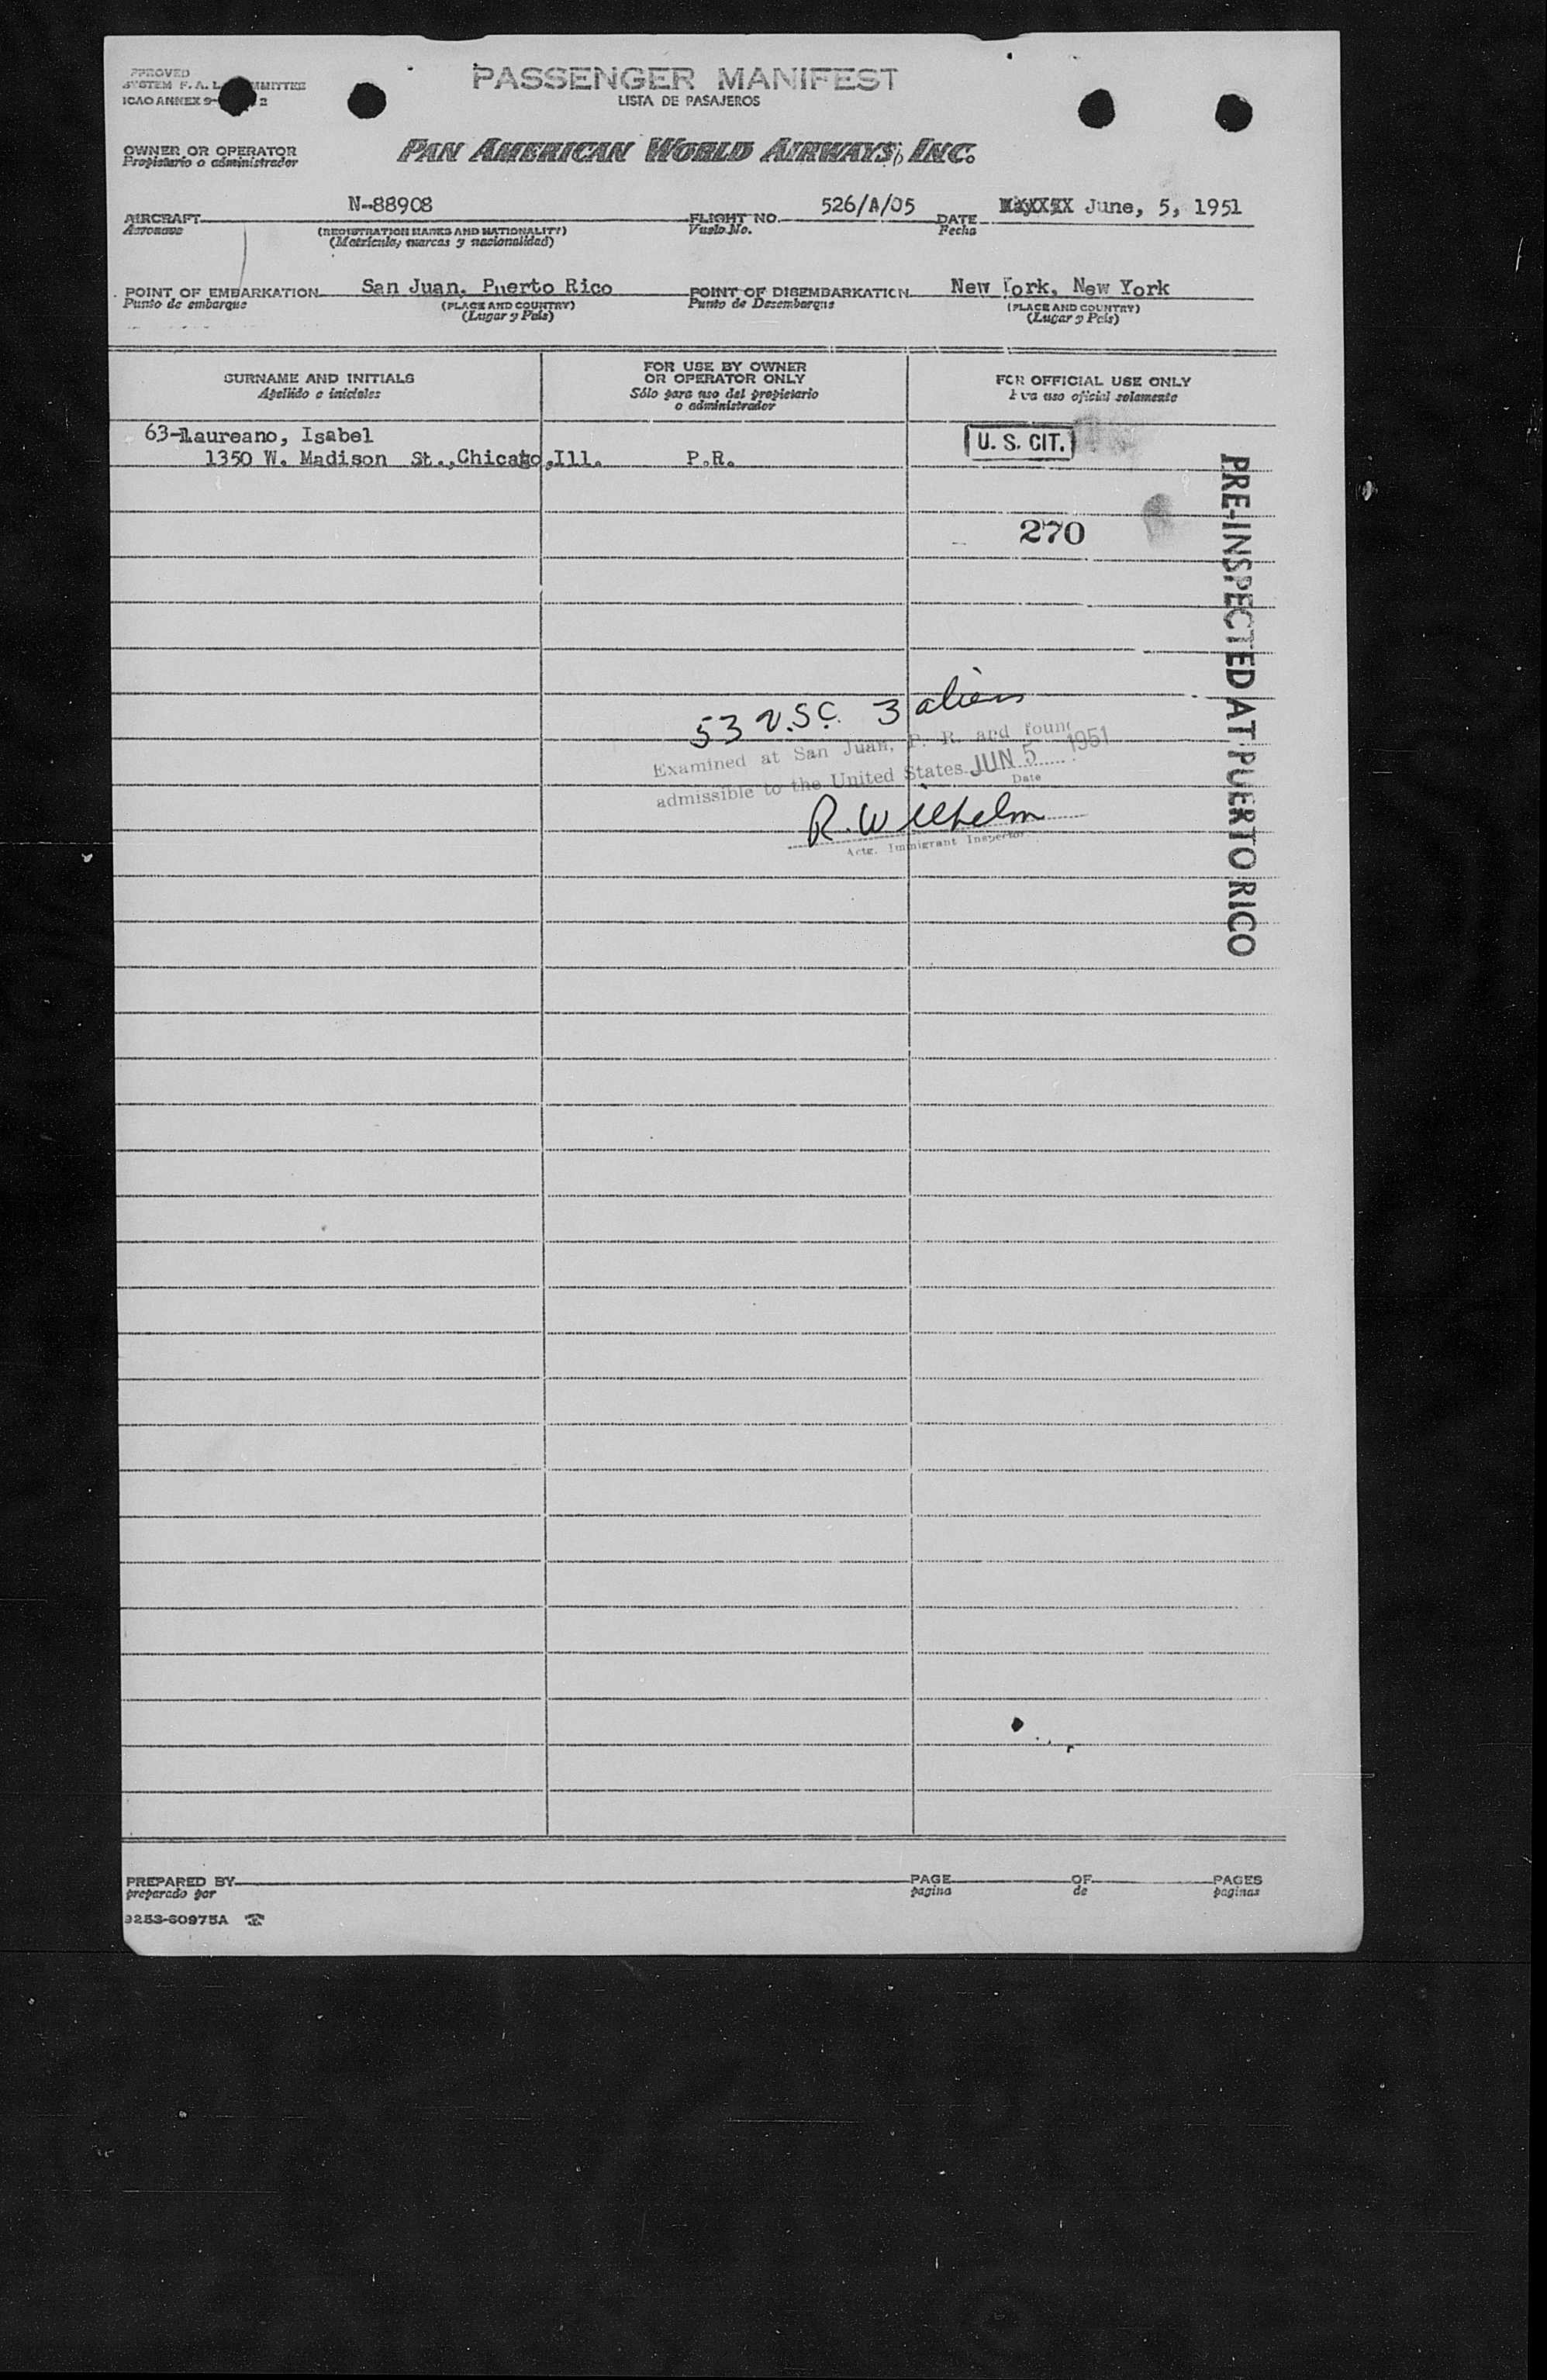 PASSENGER MANIFEST
LISTA DE PASAJEROS
PPROVED
SYSTEM F. A. L. MMITTEE
ICAO ANNEX 9- 2
OWNER OR OPERATOR
Propietario o administrador
PAN AMERICAN WORLD AIRWAYS, INC.
AIRCRAFT N-88908 FLIGHT NO. 526/A/05 DATE June, 5, 1951
Aeronave (REGISTRATION MARKS AND NATIONALITY) Vuelo No. Fecha
(Matricula, marcas y nacionalidad)
POINT OF EMBARKATION San Juan, Puerto Rico POINT OF DISEMBARKATION New York, New York
Punto de embarque (PLACE AND COUNTRY) Punto de Desembarque (PLACE AND COUNTRY)
(Lugar y País) (Lugar y País)
SURNAME AND INITIALS
Apellido e iniciales
FOR USE BY OWNER
OR OPERATOR ONLY
Sólo para uso del propietario
o administrador
FOR OFFICIAL USE ONLY
uso oficial solamente
63-Laureano, Isabel U. S. CIT.
1350 W. Madison St., Chicago, Ill. P.R.
270
PRE-INSPECTED AT PUERTO RICO
53 U.S.C. 3 aliens
Examined at San Juan, P. R. and foun
admissible to the United States JUN 5 1951
Date
R. Wilhelm
Actg. Immigrant Inspector
PREPARED BY PAGE OF PAGES
preparado por pagina de paginas
9253-60975A